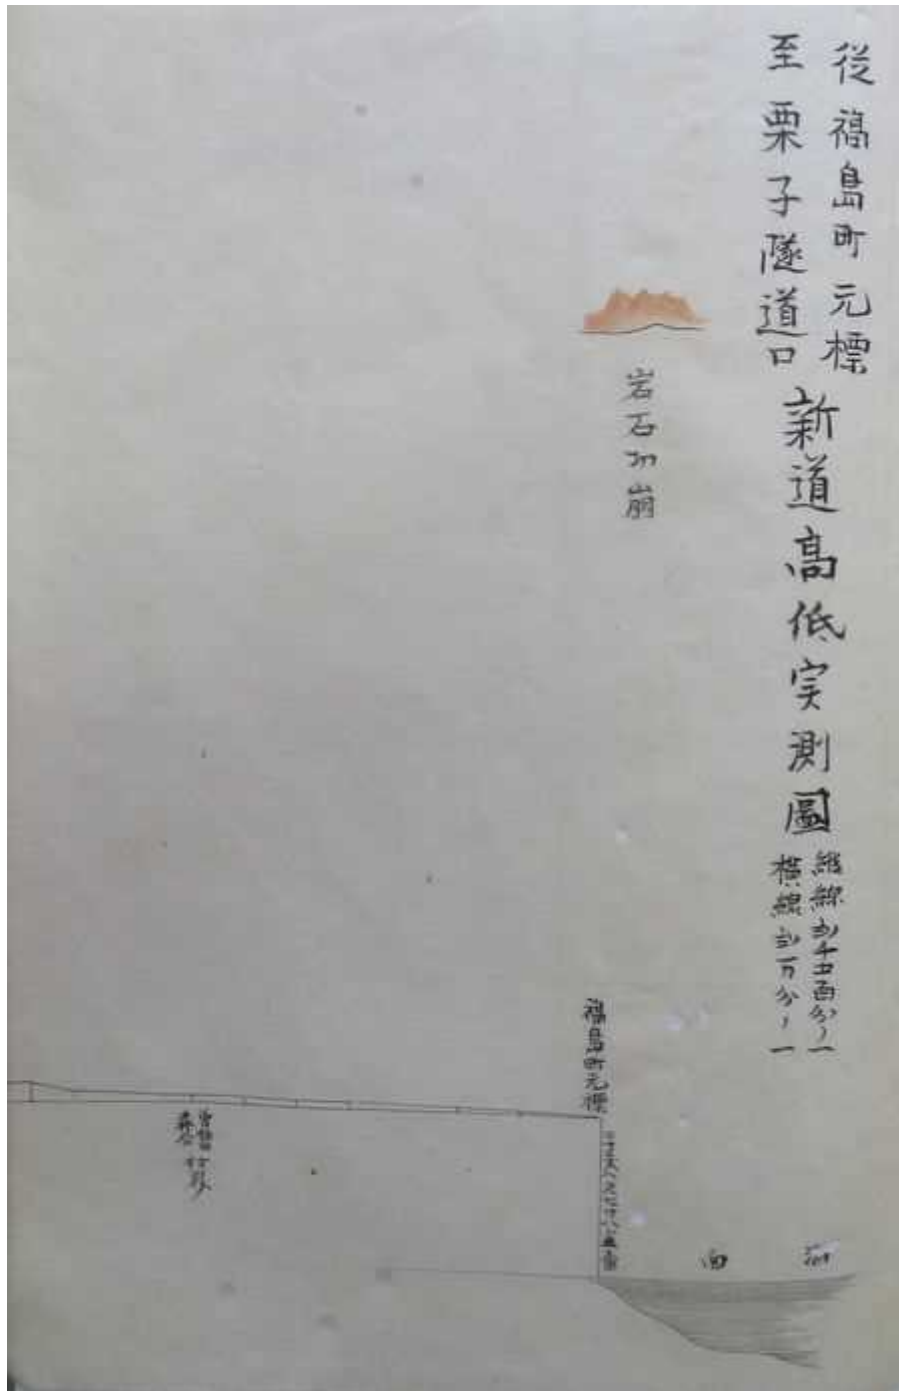 従福島町元標
至栗子隧道口
新道高低実測圖
縦線弐千五百分ノ一
横線弐万分ノ一
岩石切崩
福島町元標
海面